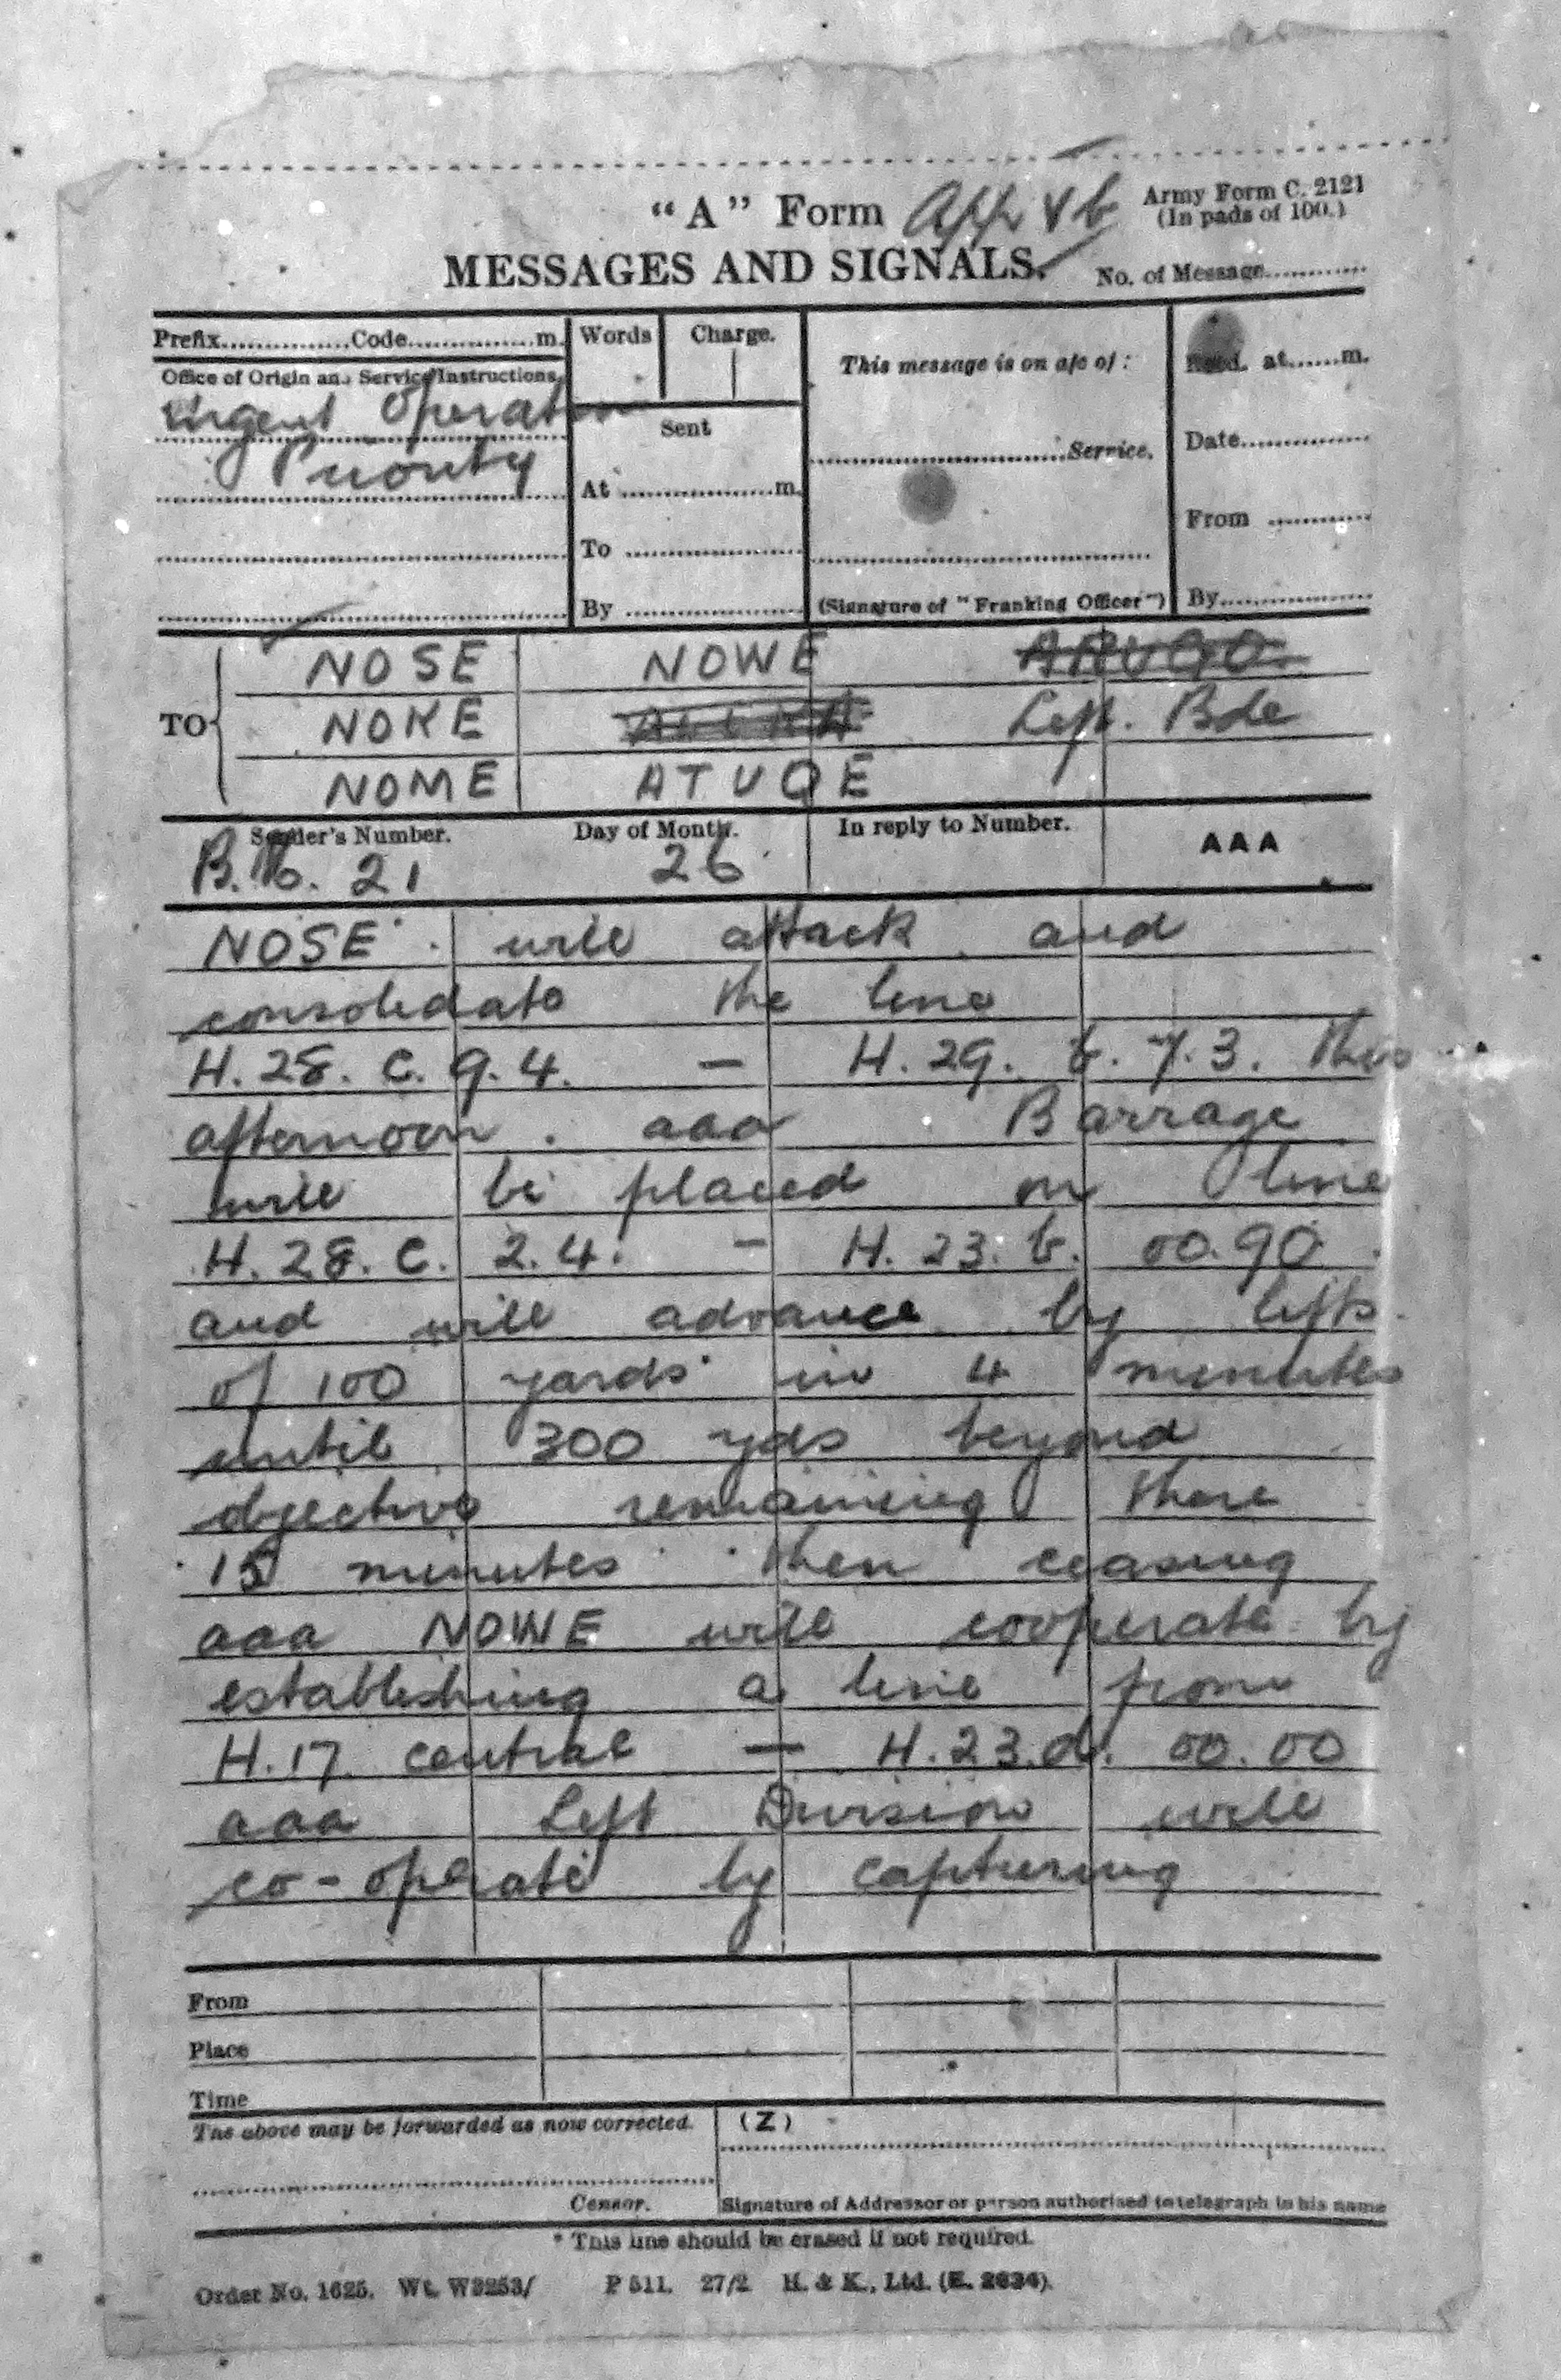 "A" Form App Vb Army Form C. 2121
(In pads of 100.)
MESSAGES AND SIGNALS. No. of Message............
Prefix................Code...............m. Words Charge. This message is on a/c of : Recd. at......m.
Office of Origin and Service Instructions.
Urgent Operation Sent
Priority ..............................Service. Date..............
At .................m. From ............
To ....................
By .................... (Signature of "Franking Officer") By.................
TO NOSE NOWE
NOKE Left. Bde
NOME ATUQE
Sender's Number. Day of Month. In reply to Number. AAA
B.M. 21 26
NOSE will attack and
consolidate the line
H.28. C. 9.4. — H.29. b. 7.3. this
afternoon. aaa Barrage
will be placed on line
H.28. C. 2.4. — H.23. b. 00.90
and will advance by lifts
of 100 yards in 4 minutes
until 300 yds beyond
objective remaining there
15 minutes then ceasing
aaa NOWE will cooperate by
establishing a line from
H.17. central — H.23.d. 00.00
aaa Left Division will
co-operate by capturing
From
Place
Time
The above may be forwarded as now corrected. (Z)
Censor. Signature of Addressor or person authorised to telegraph in his name
* This line should be erased if not required.
Order No. 1625. Wt. W3253/ P 511. 27/2 H. & K., Ltd. (E. 2634).